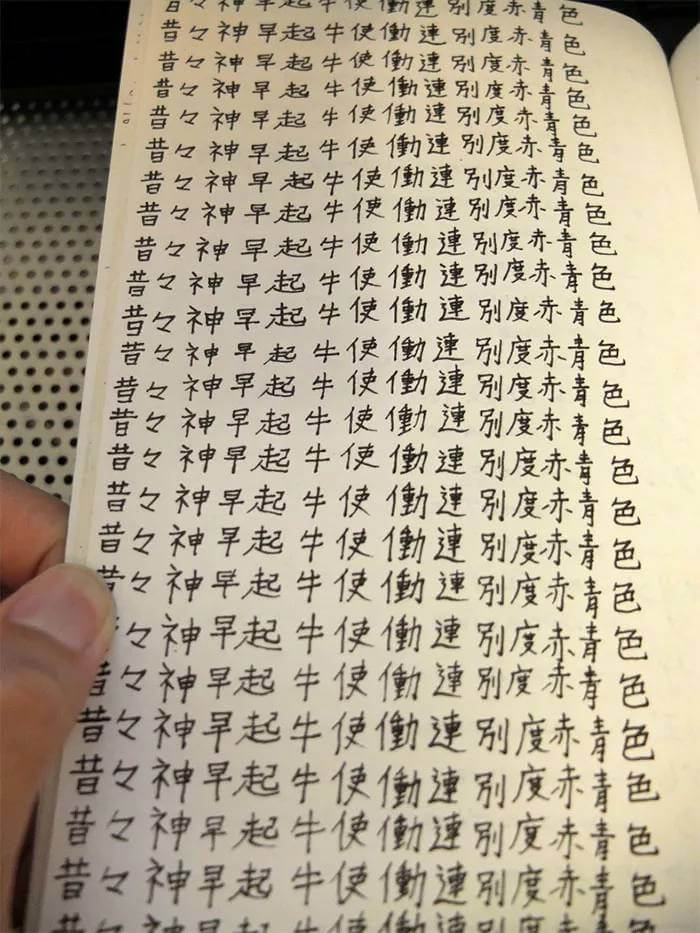 昔々神早起牛使働連別度赤青
昔々神早起牛使働連別度赤青色
昔々神早起牛使働連別度赤青色
昔々神早起牛使働連別度赤青色
昔々神早起牛使働連別度赤青色
昔々神早起牛使働連別度赤青色
昔々神早起牛使働連別度赤青色
昔々神早起牛使働連別度赤青色
昔々神早起牛使働連別度赤青色
昔々神早起牛使働連別度赤青色
昔々神早起牛使働連別度赤青色
昔々神早起牛使働連別度赤青色
昔々神早起牛使働連別度赤青色
昔々神早起牛使働連別度赤青色
昔々神早起牛使働連別度赤青色
昔々神早起牛使働連別度赤青色
昔々神早起牛使働連別度赤青色
昔々神早起牛使働連別度赤青色
々神早起牛使働連別度赤青色
昔々神早起牛使働連別度赤青色
昔々神早起牛使働連別度赤青色
昔々神早起牛使働連別度赤青色
昔々神早起牛使働連別度赤青色
昔々神早起牛使働連別度赤青色